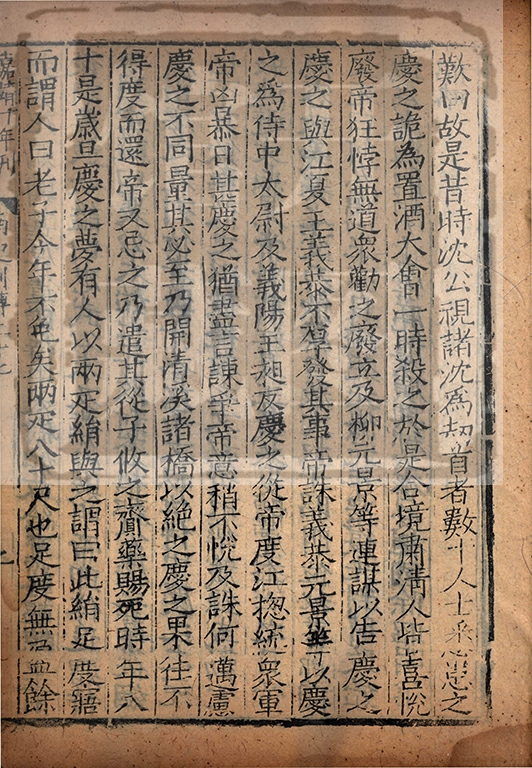 歎曰故是昔時沈公視諸沈為刧首者數十人士悉患之
慶之詭為置酒大會一時殺之於是合境肅清人皆喜悅
廢帝狂悖無道衆勸之廢立及柳元景等連謀以告慶之
慶之與江夏王義恭不厚發其事帝誅義恭元景等以慶
之為侍中太尉及義陽王昶反慶之從帝度江揔統衆軍
帝凶暴日甚慶之猶盡言諫爭帝意稍不悅及誅何邁慮
慶之不同量其必至乃開清溪諸橋以絶之慶之果往不
得度而還帝又忌之乃遣其從子攸之齎藥賜死時年八
十是歲旦慶之夢有人以兩疋絹與之謂曰此絹足度寤
而謂人曰老子今年不免矣兩疋八十尺也足度無盈餘
嘉靖十年刊